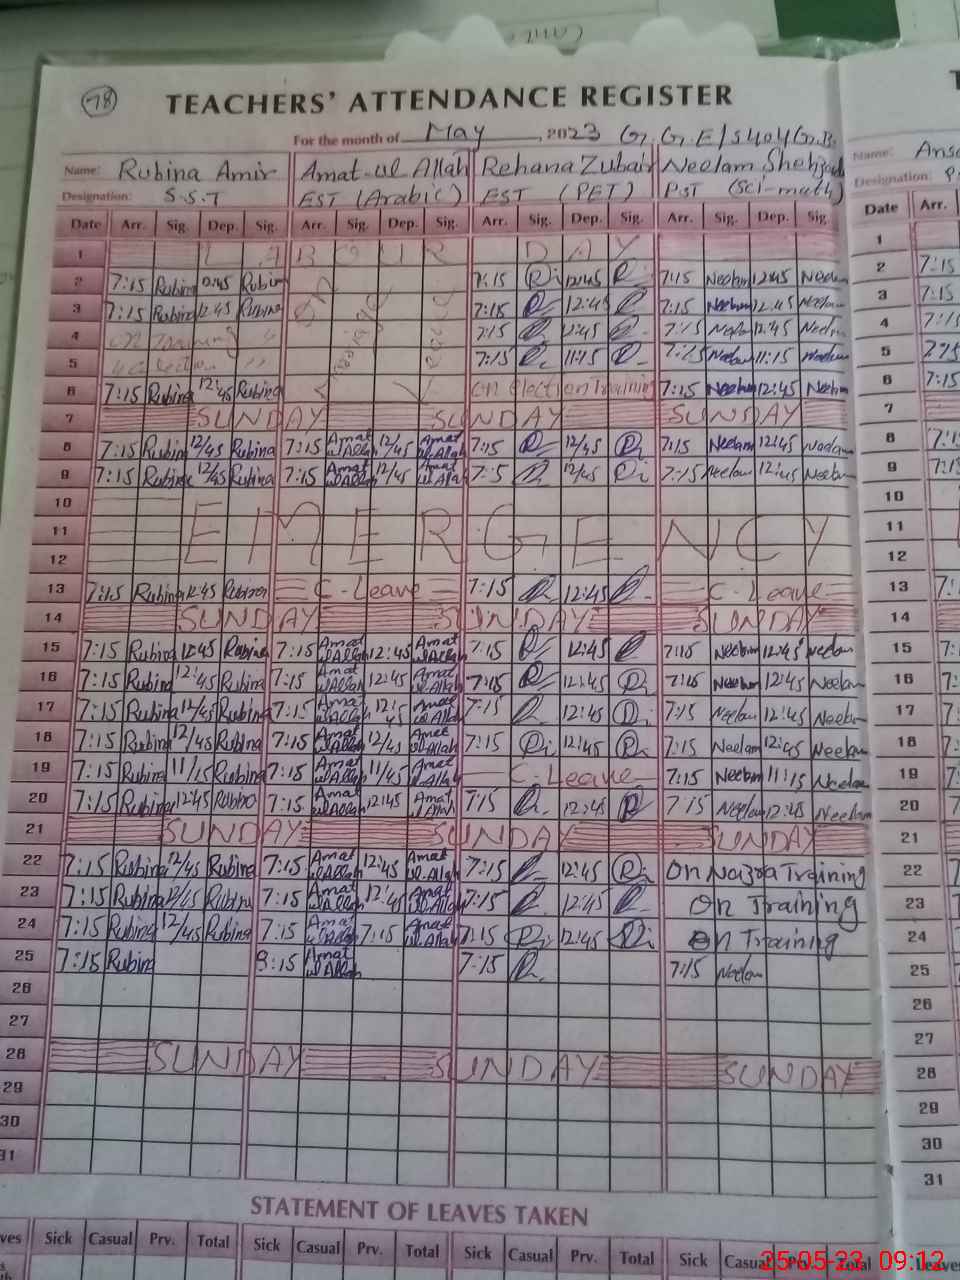 78
TEACHERS' ATTENDANCE REGISTER
For the month of May, 2023 G.G.E/S 404 G.B.
Name: Rubina Amir Amat-ul Allah Rehana Zubair Neelam Shehzad Name:
Designation: S.S.T EST (Arabic) EST (PET) PST (Sci-math) Designation:
Date Arr. Sig. Dep. Sig. Arr. Sig. Dep. Sig. Arr. Sig. Dep. Sig. Arr. Sig. Dep. Sig. Date Arr.
1 LABOUR DAY 1
2 7:15 Rubina 12:45 Rubina 7:15 12:45 7:15 Neelam 12:45 Neelam 2 7:15
3 7:15 Rubina 12:45 Rubina 7:15 12:45 7:15 Neelam 12:45 Neelam 3 7:15
4 on Training 7:15 12:45 7:15 Neelam 12:45 Neelam 4 7:15
5 7:15 11:15 7:15 Neelam 11:15 Neelam 5 7:15
6 7:15 Rubina 12:45 Rubina On Election Training 7:15 Neelam 12:45 Neelam 6 7:15
7 SUNDAY SUNDAY SUNDAY 7
8 7:15 Rubina 12/45 Rubina 7:15 Amat ul Allah 12/45 Amat ul Allah 7:15 12/45 7:15 Neelam 12:45 Neelam 8 7:15
9 7:15 Rubina 12/45 Rubina 7:15 Amat ul Allah 12/45 Amat ul Allah 7:15 12/45 7:15 Neelam 12:45 Neelam 9 7:15
10 10
11 EMERGENCY 11
12 12
13 7:15 Rubina 12:45 Rubina C-Leave 7:15 12:45 C-Leave 13
14 SUNDAY SUNDAY SUNDAY 14
15 7:15 Rubina 12:45 Rubina 7:15 Amat ul Allah 12:45 Amat ul Allah 7:15 12:45 7:15 Neelam 12:45 Neelam 15
16 7:15 Rubina 12:45 Rubina 7:15 Amat ul Allah 12:45 Amat ul Allah 7:15 12:45 7:15 Neelam 12:45 Neelam 16
17 7:15 Rubina 12/45 Rubina 7:15 Amat ul Allah 12:45 Amat ul Allah 7:15 12:45 7:15 Neelam 12:45 Neelam 17
18 7:15 Rubina 12/45 Rubina 7:15 Amat ul Allah 12/45 Amat ul Allah 7:15 12:45 7:15 Neelam 12:45 Neelam 18
19 7:15 Rubina 11/15 Rubina 7:15 Amat ul Allah 11/45 Amat ul Allah C-Leave 7:15 Neelam 11:15 Neelam 19
20 7:15 Rubina 12:45 7:15 Amat ul Allah 12:45 Amat ul Allah 7:15 12:45 7:15 Neelam 12:45 Neelam 20
21 SUNDAY SUNDAY SUNDAY 21
22 7:15 Rubina 12/45 Rubina 7:15 Amat ul Allah 12:45 Amat ul Allah 7:15 12:45 On Nazra Training 22
23 7:15 Rubina 12/45 Rubina 7:15 Amat ul Allah 12:45 Amat ul Allah 7:15 12:45 On Training 23
24 7:15 Rubina 12/45 Rubina 7:15 Amat ul Allah 7:15 Amat ul Allah 7:15 12:45 On Training 24
25 7:15 Rubina 8:15 Amat ul Allah 7:15 7:15 Neelam 25
26 26
27 27
28 SUNDAY SUNDAY SUNDAY 28
29 29
30 30
31 31
STATEMENT OF LEAVES TAKEN
Sick Casual Prv. Total Sick Casual Prv. Total Sick Casual Prv. Total Sick Casual Prv. Total Leaves
25-05-23, 09:12